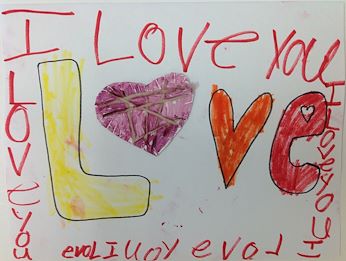 I LOVE YOU
LOVE
I LOVE YOU
I LOVE YOU
I LOVE YOU I LOVE